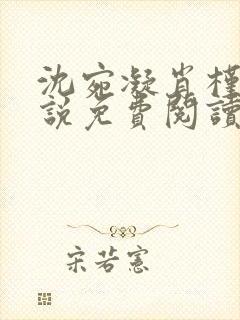 沈宛凝肖槿
說免費閱讀
宋若憲